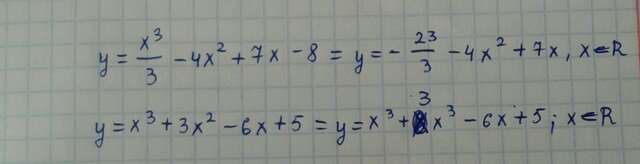 y = x³/3 - 4x² + 7x - 8 = y = - 23/3 - 4x² + 7x, x∈R
y = x³ + 3x² - 6x + 5 = y = x³ + 3x³ - 6x + 5; x∈R